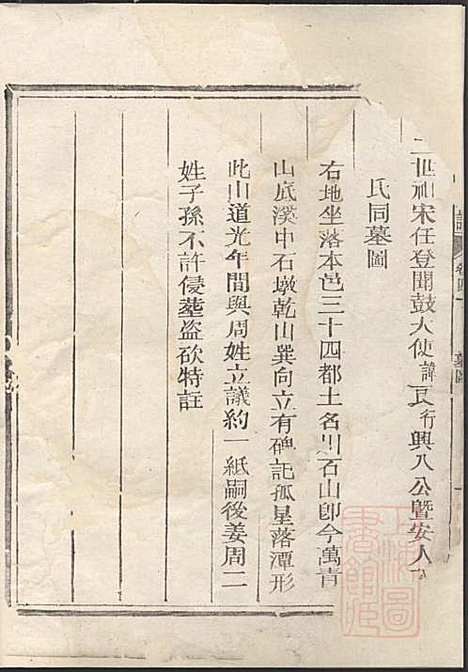 二世祖宋任登聞鼓大使諱良行興八公暨安人
氏同墓圖
右地坐落本邑三十四都土名川石山卽今萬青
山底溪中石墩乾山巽向立有碑記孤星落潭形
此山道光年間與周姓立議約一紙嗣後姜周二
姓子孫不許侵塟盜砍特註
卷四
墓圖